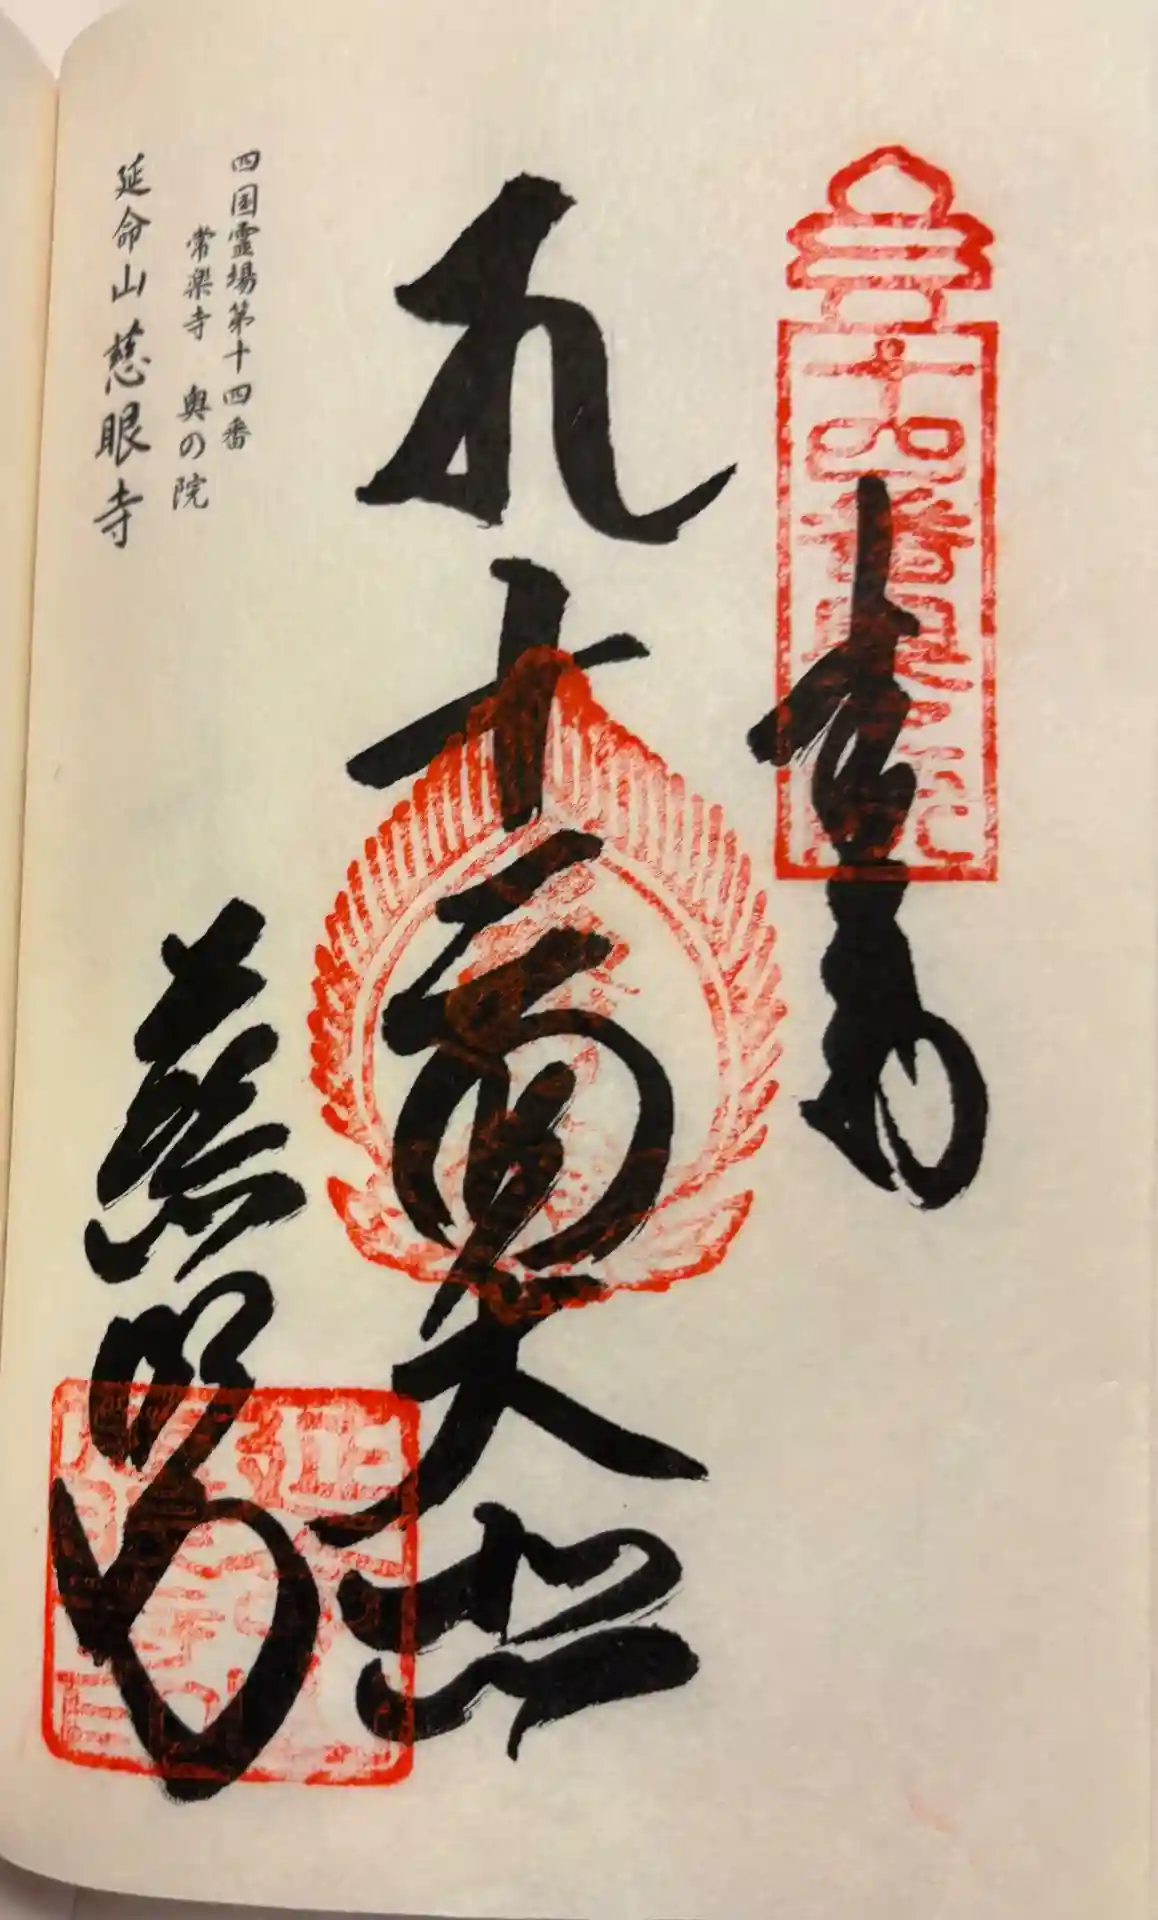 十四番奥之院
奉拝
十一面大悲
四国霊場第十四番
常楽寺 奥の院
延命山慈眼寺
慈眼寺